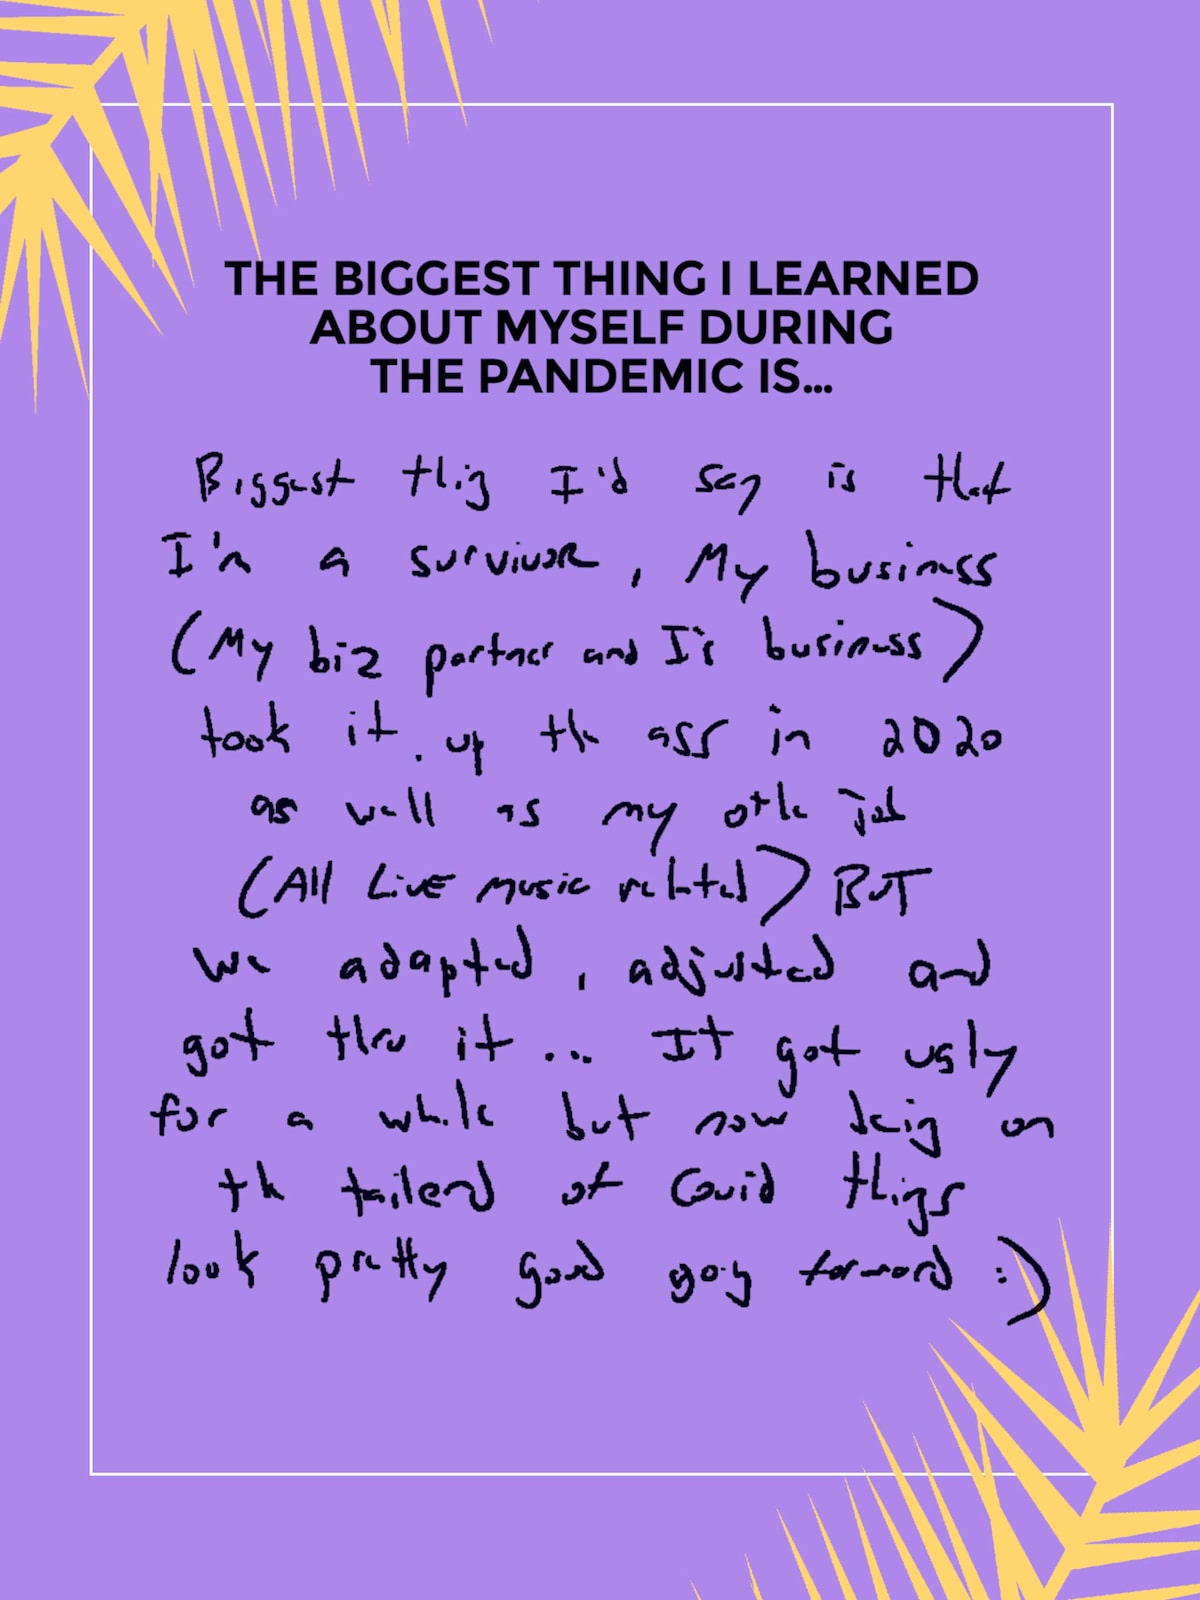 THE BIGGEST THING I LEARNED
ABOUT MYSELF DURING
THE PANDEMIC IS...
Biggest thing I'd say is that
I'm a survivor, My business
(My biz partner and I's business)
took it. up the ass in 2020
as well as my other job
(All LivE music related) BUT
we adapted, adjusted and
got thru it... It got ugly
for a while but now being on
the tailend of Covid things
look pretty good going forward :)